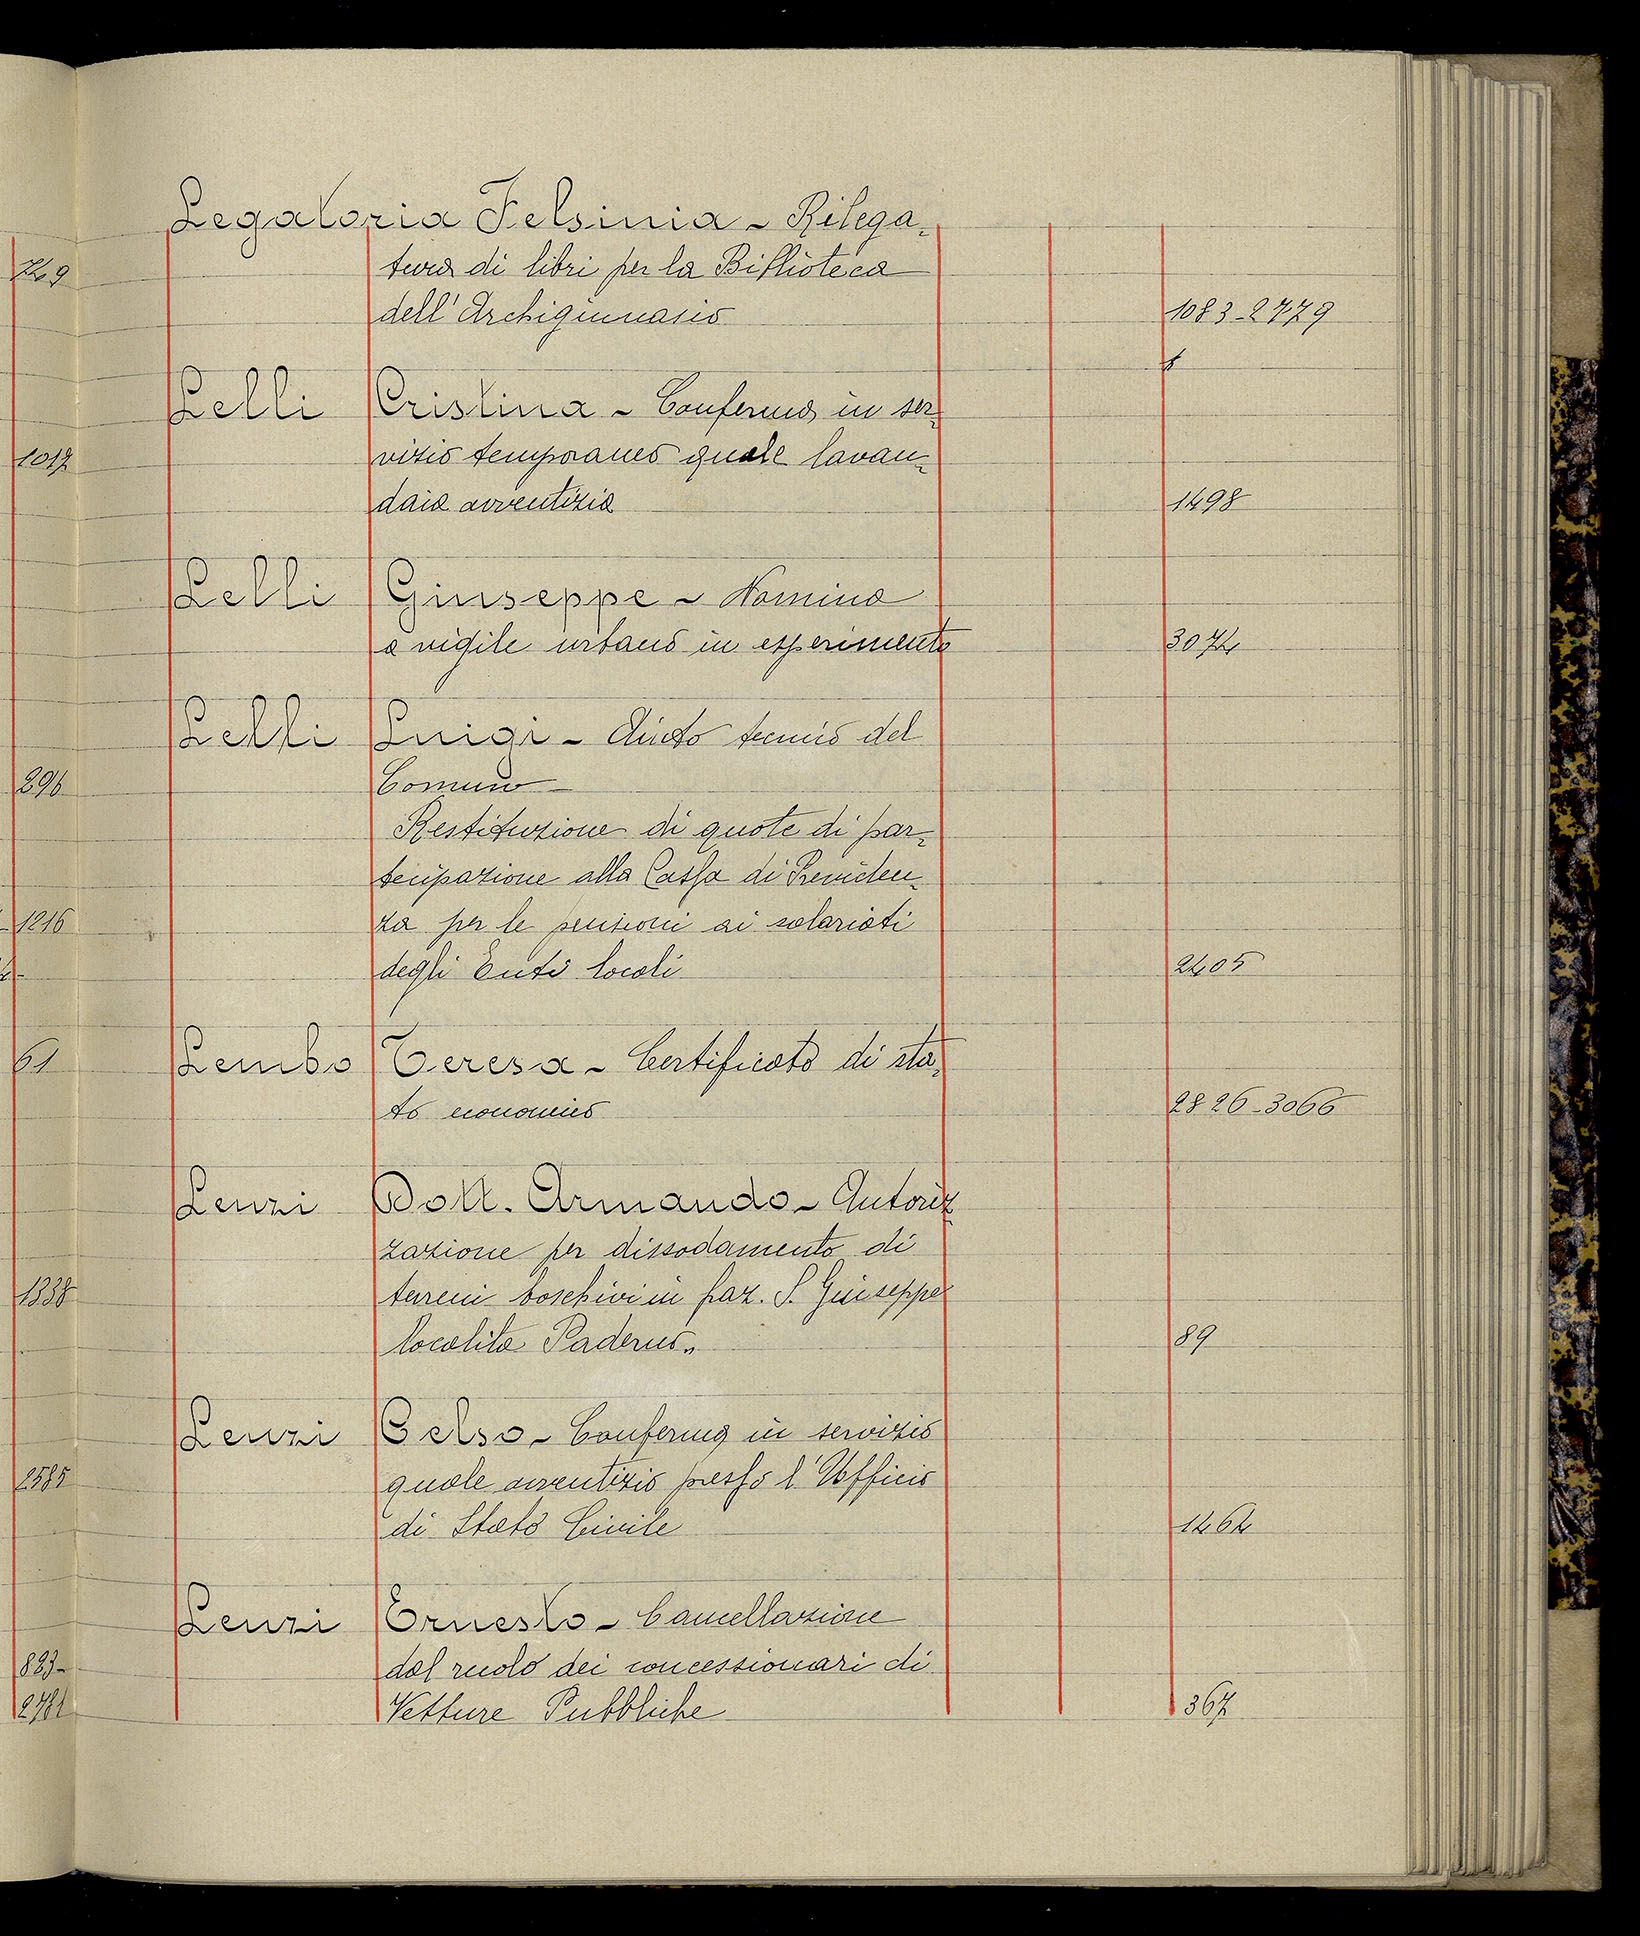 Legatoria Felsinia - Rilega-
tura di libri per la Biblioteca
dell'Archiginnasio 1083-2779
Lelli Cristina - Conferma in ser-
vizio temporaneo quale lavan-
daia avventizia 1498
Lelli Giuseppe - Nomina
a vigile urbano in esperimento 3074
Lelli Luigi - Aiuto tecnico del
Comune -
Restituzione di quote di par-
tecipazione alla Cassa di Previden-
za per le pensioni ai salariati
degli Enti locali 2405
Lembo Teresa - Certificato di sta-
to economico 2826-3066
Lenzi Dott. Armando - Autoriz-
zazione per dissodamento di
terreni boschivi in fraz. S. Giuseppe
località Paderno„ 89
Lenzi Celso - Conferma in servizio
quale avventizio presso l'Ufficio
di Stato Civile 1464
Lenzi Ernesto - Cancellazione
dal ruolo dei concessionari di
Vetture Pubbliche 367
749
1017
296
1216
61
1338
2585
823-
2781